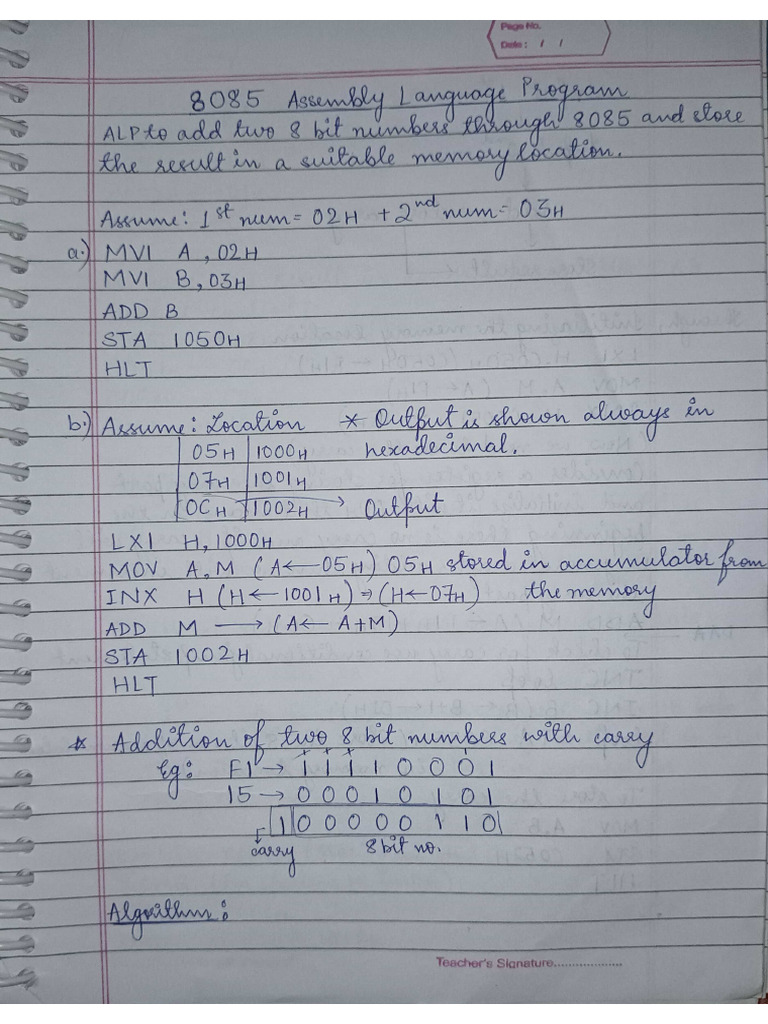 Page No.
Date: / /
8085 Assembly Language Program
ALP to add two 8 bit numbers through 8085 and store
the result in a suitable memory location.
Assume: 1st num = 02H + 2nd num = 03H
a.) MVI A, 02H
MVI B, 03H
ADD B
STA 1050H
HLT
b.) Assume: Location * Output is shown always in
05H 1000H hexadecimal.
07H 1001H
0CH 1002H → Output
LXI H, 1000H
MOV A, M (A ← 05H) 05H stored in accumulator from
INX H (H ← 1001H) ⇒ (H ← 07H) the memory
ADD M → (A ← A+M)
STA 1002H
HLT
* Addition of two 8 bit numbers with carry
Eg: F1 → 1 1 1 1 0 0 0 1
15 → 0 0 0 1 0 1 0 1
1 0 0 0 0 0 1 1 0
carry 8 bit no.
Algorithm:
Teacher's Signature...................